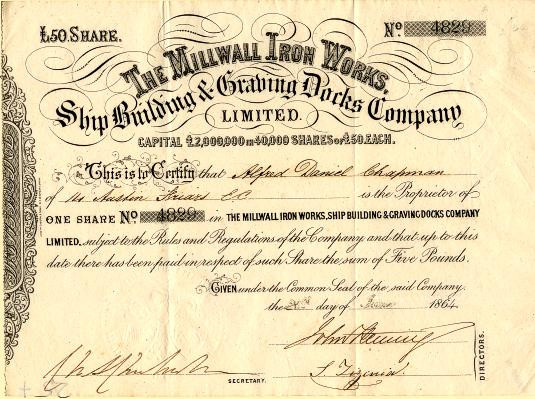 £50 SHARE.
No. 4829
THE MILLWALL IRON WORKS,
Ship Building & Graving Docks Company
LIMITED.
CAPITAL £2,000,000 IN 40,000 SHARES OF £50. EACH.
This is to Certify that Alfred Daniel Chapman
of Austin Friars E.C. is the Proprietor of
ONE SHARE No. 4829 in THE MILLWALL IRON WORKS, SHIP BUILDING & GRAVING DOCKS COMPANY
LIMITED. subject to the Rules and Regulations of the Company and that up to this
date there has been paid in respect of such Share the sum of Five Pounds.
GIVEN under the Common Seal of the said Company.
the day of June 1864
SECRETARY.
DIRECTORS.